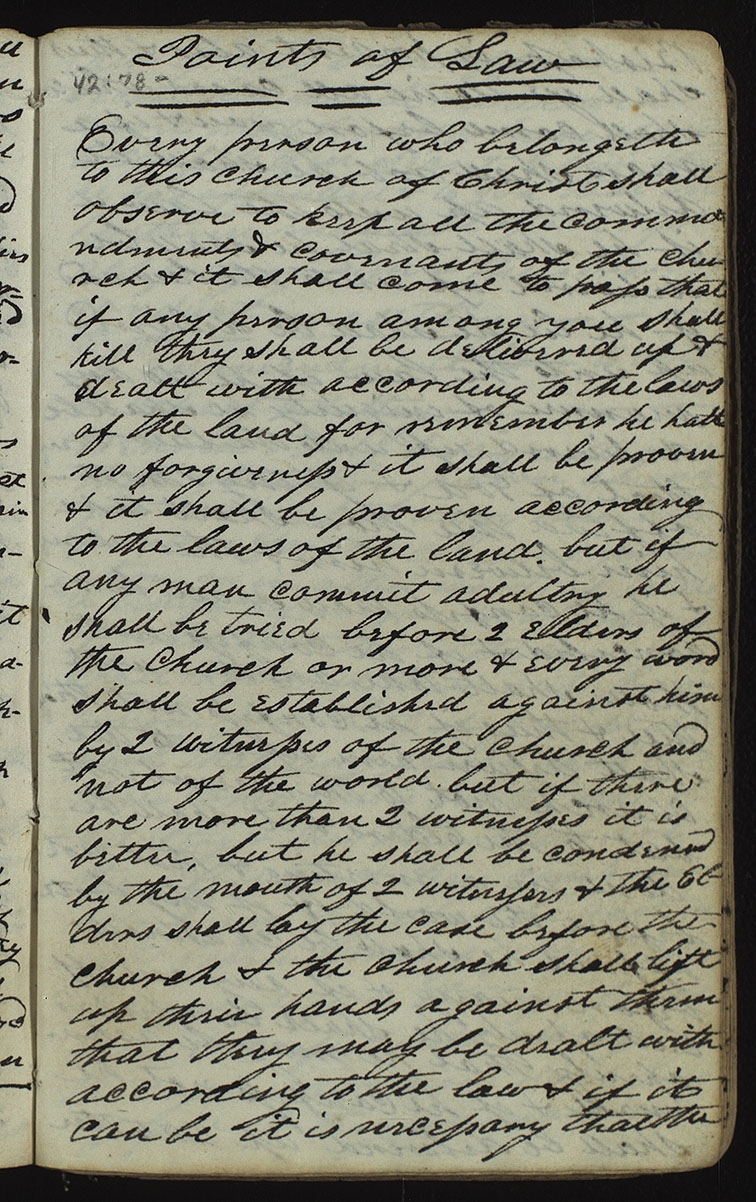 Points of Law
42:78-
Every person who belongeth
to this church of Christ shall
observe to keep all the comma
ndments & covenants of the chu
rch & it shall come to pass that
if any person among you shall
kill they shall be delivered up &
dealt with according to the laws
of the land for remember he hath
no forgiveness & it shall be proven
& it shall be proven according
to the laws of the land. but if
any man commit adultry he
shall be tried before 2 Elders of
the Church or more & every word
shall be established against him
by 2 witnesses of the church and
not of the world. but if there
are more than 2 witnesses it is
better, but he shall be condemned
by the mouth of 2 witnesses & the El
ders shall lay the case before the
church & the church shall lift
up their hands against them
that they may be dealt with
according to the law & if it
can be it is necessary that the